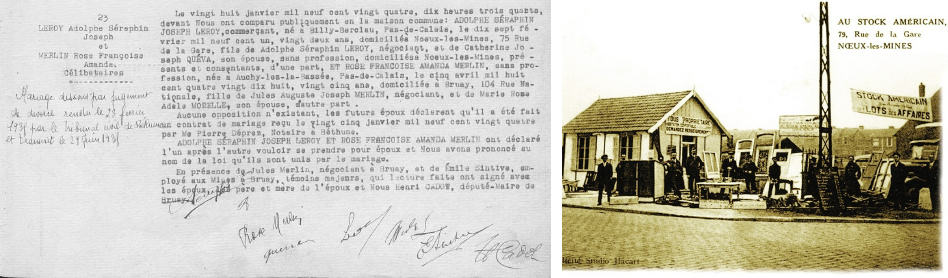 23
LEROY Adolphe Séraphin
Joseph
et
MERLIN Rose Françoise
Amanda.
Célibataires
Mariage dissous par jugement
de divorce rendu le 28 février
par le tribunal civil de Béthune
et transcrit le 29 juin
Le vingt huit janvier mil neuf cent vingt quatre, dix heures trois quarts,
devant Nous ont comparu publiquement en la maison commune: ADOLPHE SÉRAPHIN
JOSEPH LEROY,commerçant, né à Billy-Berclau, Pas-de-Calais, le dix sept fé-
vrier mil neuf cent un, vingt deux ans, domicilié Noeux-les-Mines, 75 Rue
de la Gare, fils de Adolphe Séraphin LEROY, négociant, et de Catherine Jo-
seph QUÉVA, son épouse, sans profession, domiciliés Noeux-les-Mines, pré-
sents et consentants, d'une part, ET ROSE FRANÇOISE AMANDA MERLIN, sans pro-
fession, née à Auchy-les-La-Bassée, Pas-de-Calais, le cinq avril mil huit
cent quatre vingt dix huit, vingt cinq ans, domiciliée à Bruay, 104 Rue Na-
tionale, fille de Jules Auguste Joseph MERLIN, négociant, et de Marie Rose
Adèle MORELLE, son épouse, d'autre part .
Aucune opposition n'existant, les futurs époux déclarent qu'il a été fait
un contrat de mariage reçu le vingt cinq janvier mil neuf cent vingt quatre
par Me Pierre Dépret, Notaire à Béthune.
ADOLPHE SÉRAPHIN JOSEPH LEROY ET ROSE FRANÇOISE AMANDA MERLIN ont déclaré
l'un après l'autre vouloir se prendre pour époux et Nous avons prononcé au
nom de la loi qu'ils sont unis par le mariage.
En présence de Jules Merlin, négociant à Bruay, et de Émile Sintive, em-
ployé aux Mines à Bruay, témoins majeurs, qui lecture faite ont signé avec
les époux, les père et mère de l'époux et Nous Henri CADOT, député-Maire de
Bruay.
Rose Merlin
H Cadot
AU STOCK AMÉRICAIN,
79, Rue de la Gare
NŒUX-les-MINES
VOUS PROPRIÉTAIRE
DEMANDEZ RENSEIGNEMENTS
STOCK AMÉRICAIN
LOTS AFFAIRES
Studio Hacart